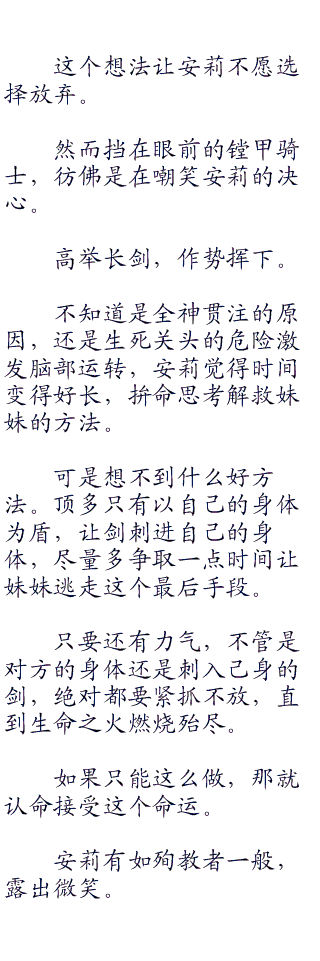 这个想法让安莉不愿选
择放弃。
然而挡在眼前的镗甲骑
士，彷佛是在嘲笑安莉的决
心。
高举长剑，作势挥下。
不知道是全神贯注的原
因，还是生死关头的危险激
发脑部运转，安莉觉得时间
变得好长，拚命思考解救妹
妹的方法。
可是想不到什么好方
法。顶多只有以自己的身体
为盾，让剑刺进自己的身
体，尽量多争取一点时间让
妹妹逃走这个最后手段。
只要还有力气，不管是
对方的身体还是刺入己身的
剑，绝对都要紧抓不放，直
到生命之火燃烧殆尽。
如果只能这么做，那就
认命接受这个命运。
安莉有如殉教者一般，
露出微笑。